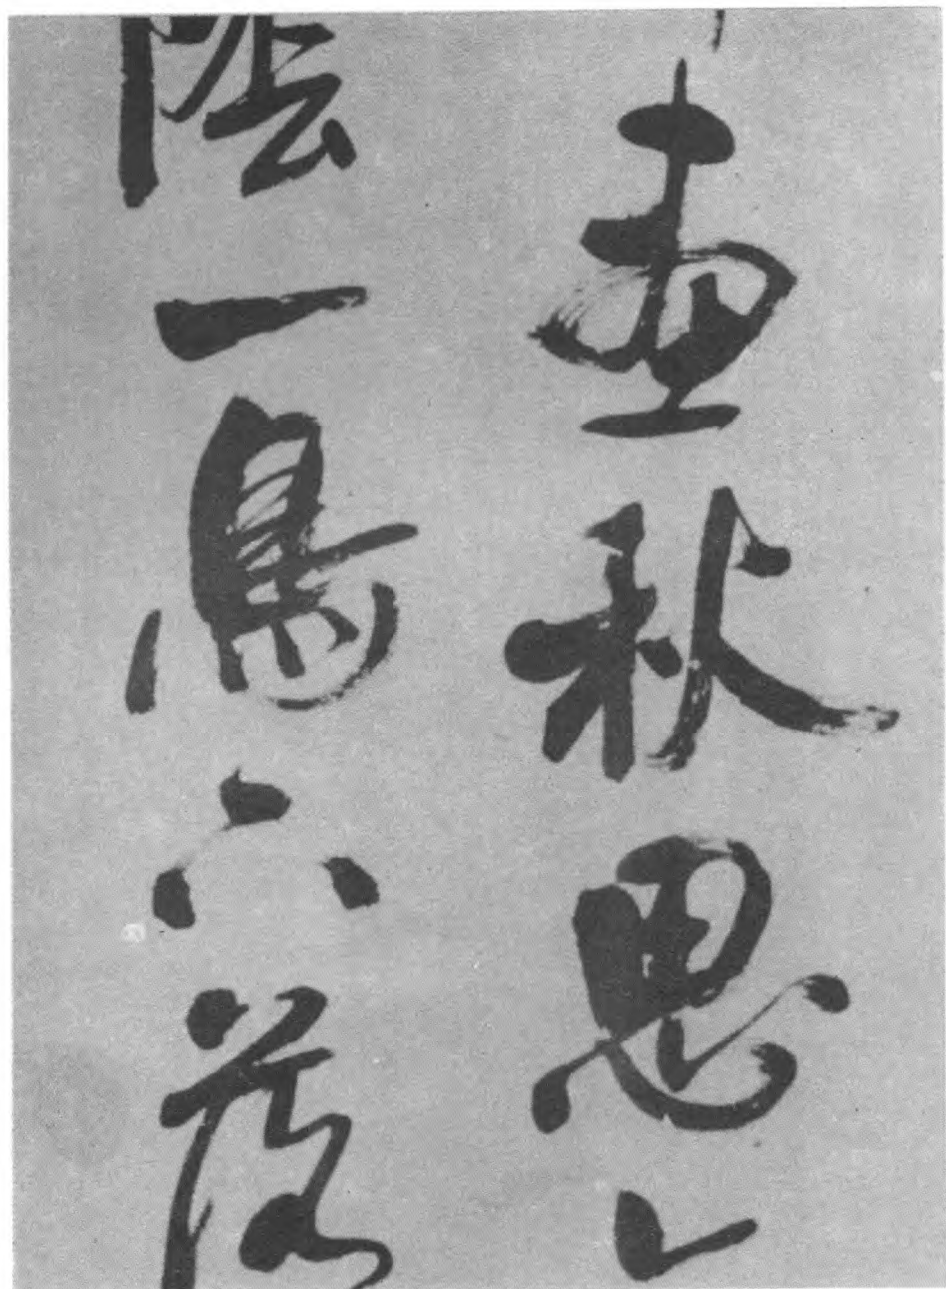 畫秋思
陰一鳥六落